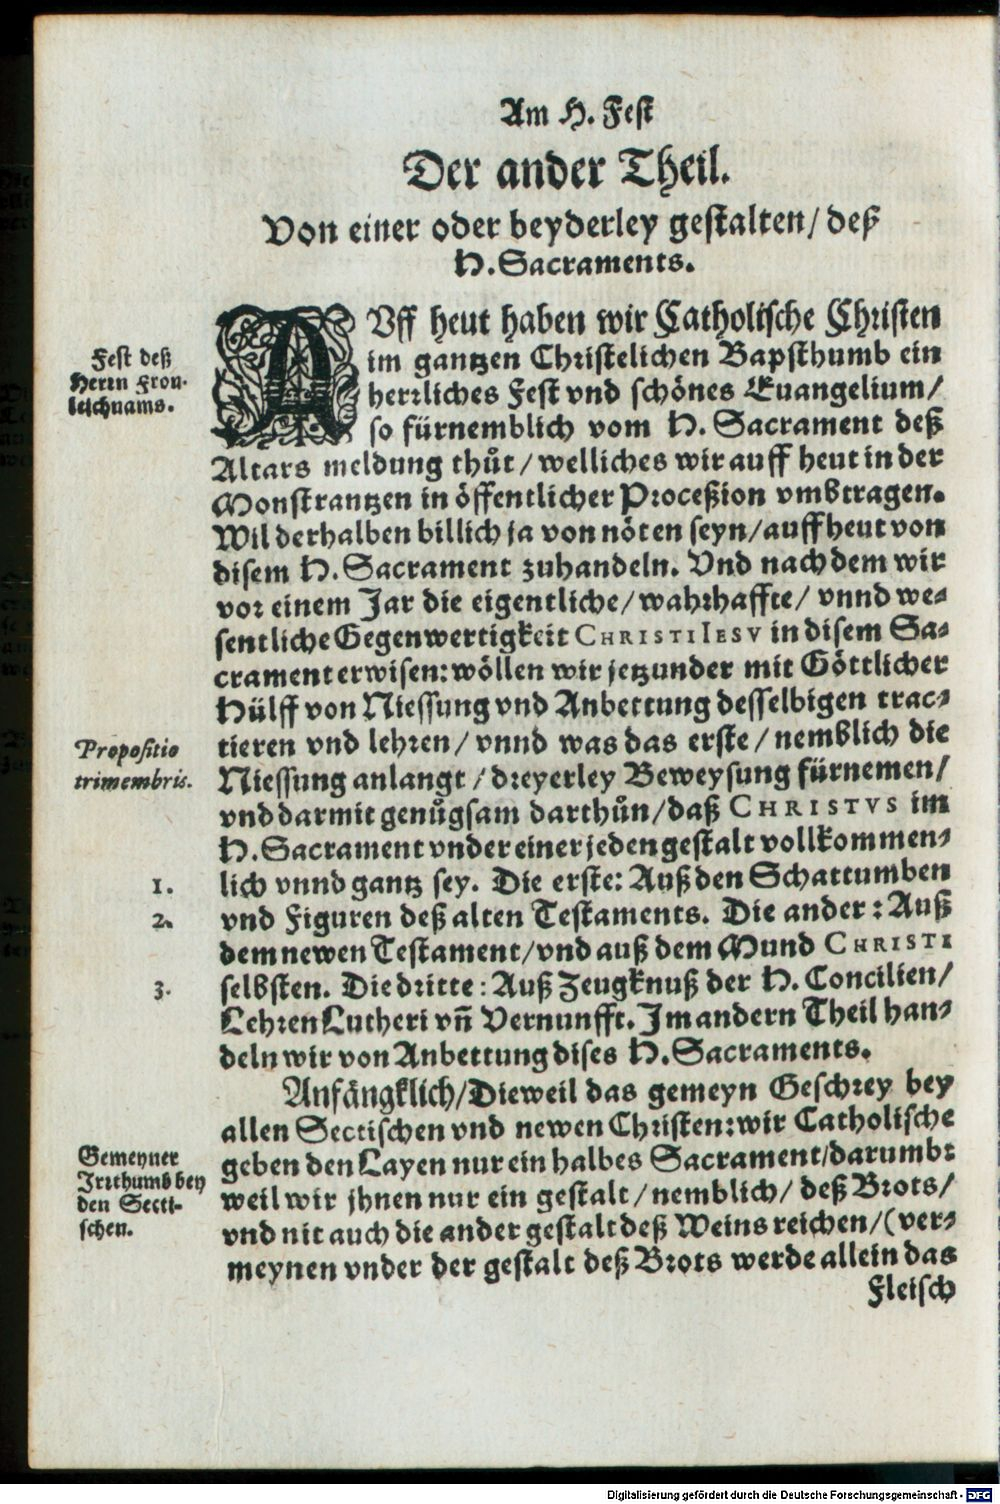 Am H. Fest
Der ander Theil.
Von einer oder beyderley gestalten/ deß
H. Sacraments.
AVff heut haben wir Catholische Christen
im gantzen Christelichen Bapsthumb ein
herrliches Fest vnd schönes Euangelium/
so fürnemblich vom H. Sacrament deß
Altars meldung thůt/ welliches wir auff heut in der
Monstrantzen in öffentlicher Proceßion vmbtragen.
Wil derhalben billich ja von nöten seyn/ auff heut von
disem H. Sacrament zuhandeln. Vnd nach dem wir
vor einem Jar die eigentliche/ wahrhaffte/ vnnd we⸗
sentliche Gegenwertigkeit CHRISTI IESV in disem Sa⸗
crament erwisen: wöllen wir jetzunder mit Göttlicher
Hülff von Niessung vnd Anbettung desselbigen trac⸗
tieren vnd lehren/ vnnd was das erste/ nemblich die
Niessung anlangt/ dreyerley Beweysung fürnemen/
vnd darmit genůgsam darthůn/ daß CHRISTVS im
H. Sacrament vnder einer jeden gestalt vollkommen⸗
lich vnnd gantz sey. Die erste: Auß den Schattumben
vnd Figuren deß alten Testaments. Die ander: Auß
dem newen Testament/ vnd auß dem Mund CHRISTI
selbsten. Die dritte: Auß Zeugknuß der H. Concilien/
Lehren Lutheri vn̄ Vernunfft. Im andern Theil han⸗
deln wir von Anbettung dises H. Sacraments.
Anfängklich/ Dieweil das gemeyn Geschrey bey
allen Sectischen vnd newen Christen: wir Catholische
geben den Layen nur ein halbes Sacrament/ darumb:
weil wir jhnen nur ein gestalt/ nemblich/ deß Brots/
vnd nit auch die ander gestalt deß Weins reichen/ (ver⸗
meynen vnder der gestalt deß Brots werde allein das
Fleisch
Fest deß
Herrn Fron⸗
leichnams.
Propositio
trimembris.
1.
2.
3.
Gemeyner
Irrthumb bey
den Secti⸗
schen.
Digitalisierung gefördert durch die Deutsche Forschungsgemeinschaft - DFG